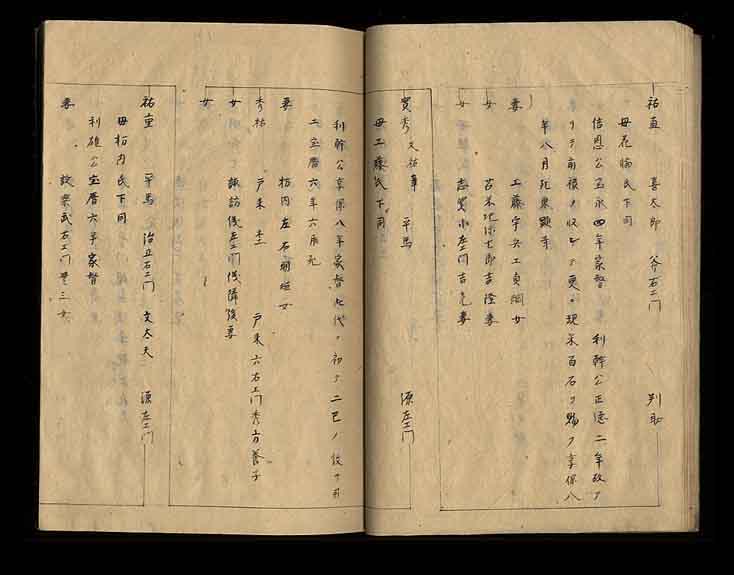 祐直 喜太郎 斧右エ門 判取
母花輪氏下同
信恩公宝永四年家督 利幹公正徳二年政ヲ
リテ前禄ヲ収 更ニ現米百石ヲ賜フ享保八
年八月死東顕寺
妻 工藤宇兵エ貞綱女
女 苫米地佐七郎吉澄妻
女 志賀小左エ門吉克妻
實秀 又祐章 平馬 源左エ門
母工藤氏下同
利幹公享保八年家督七代ノ初ヲ二已ノ役ヲ
エ宝暦六年六月死
妻 栃内左右朗女
秀祐 戸来 戸来六右エ門秀方養子
女 諏訪儀左エ門儀隣後妻
女
祐重 平馬 治五右エ門 文太夫 源左エ門
母栃内氏下同
利雄公宝暦六年家督
妻 設楽武右エ門 三女